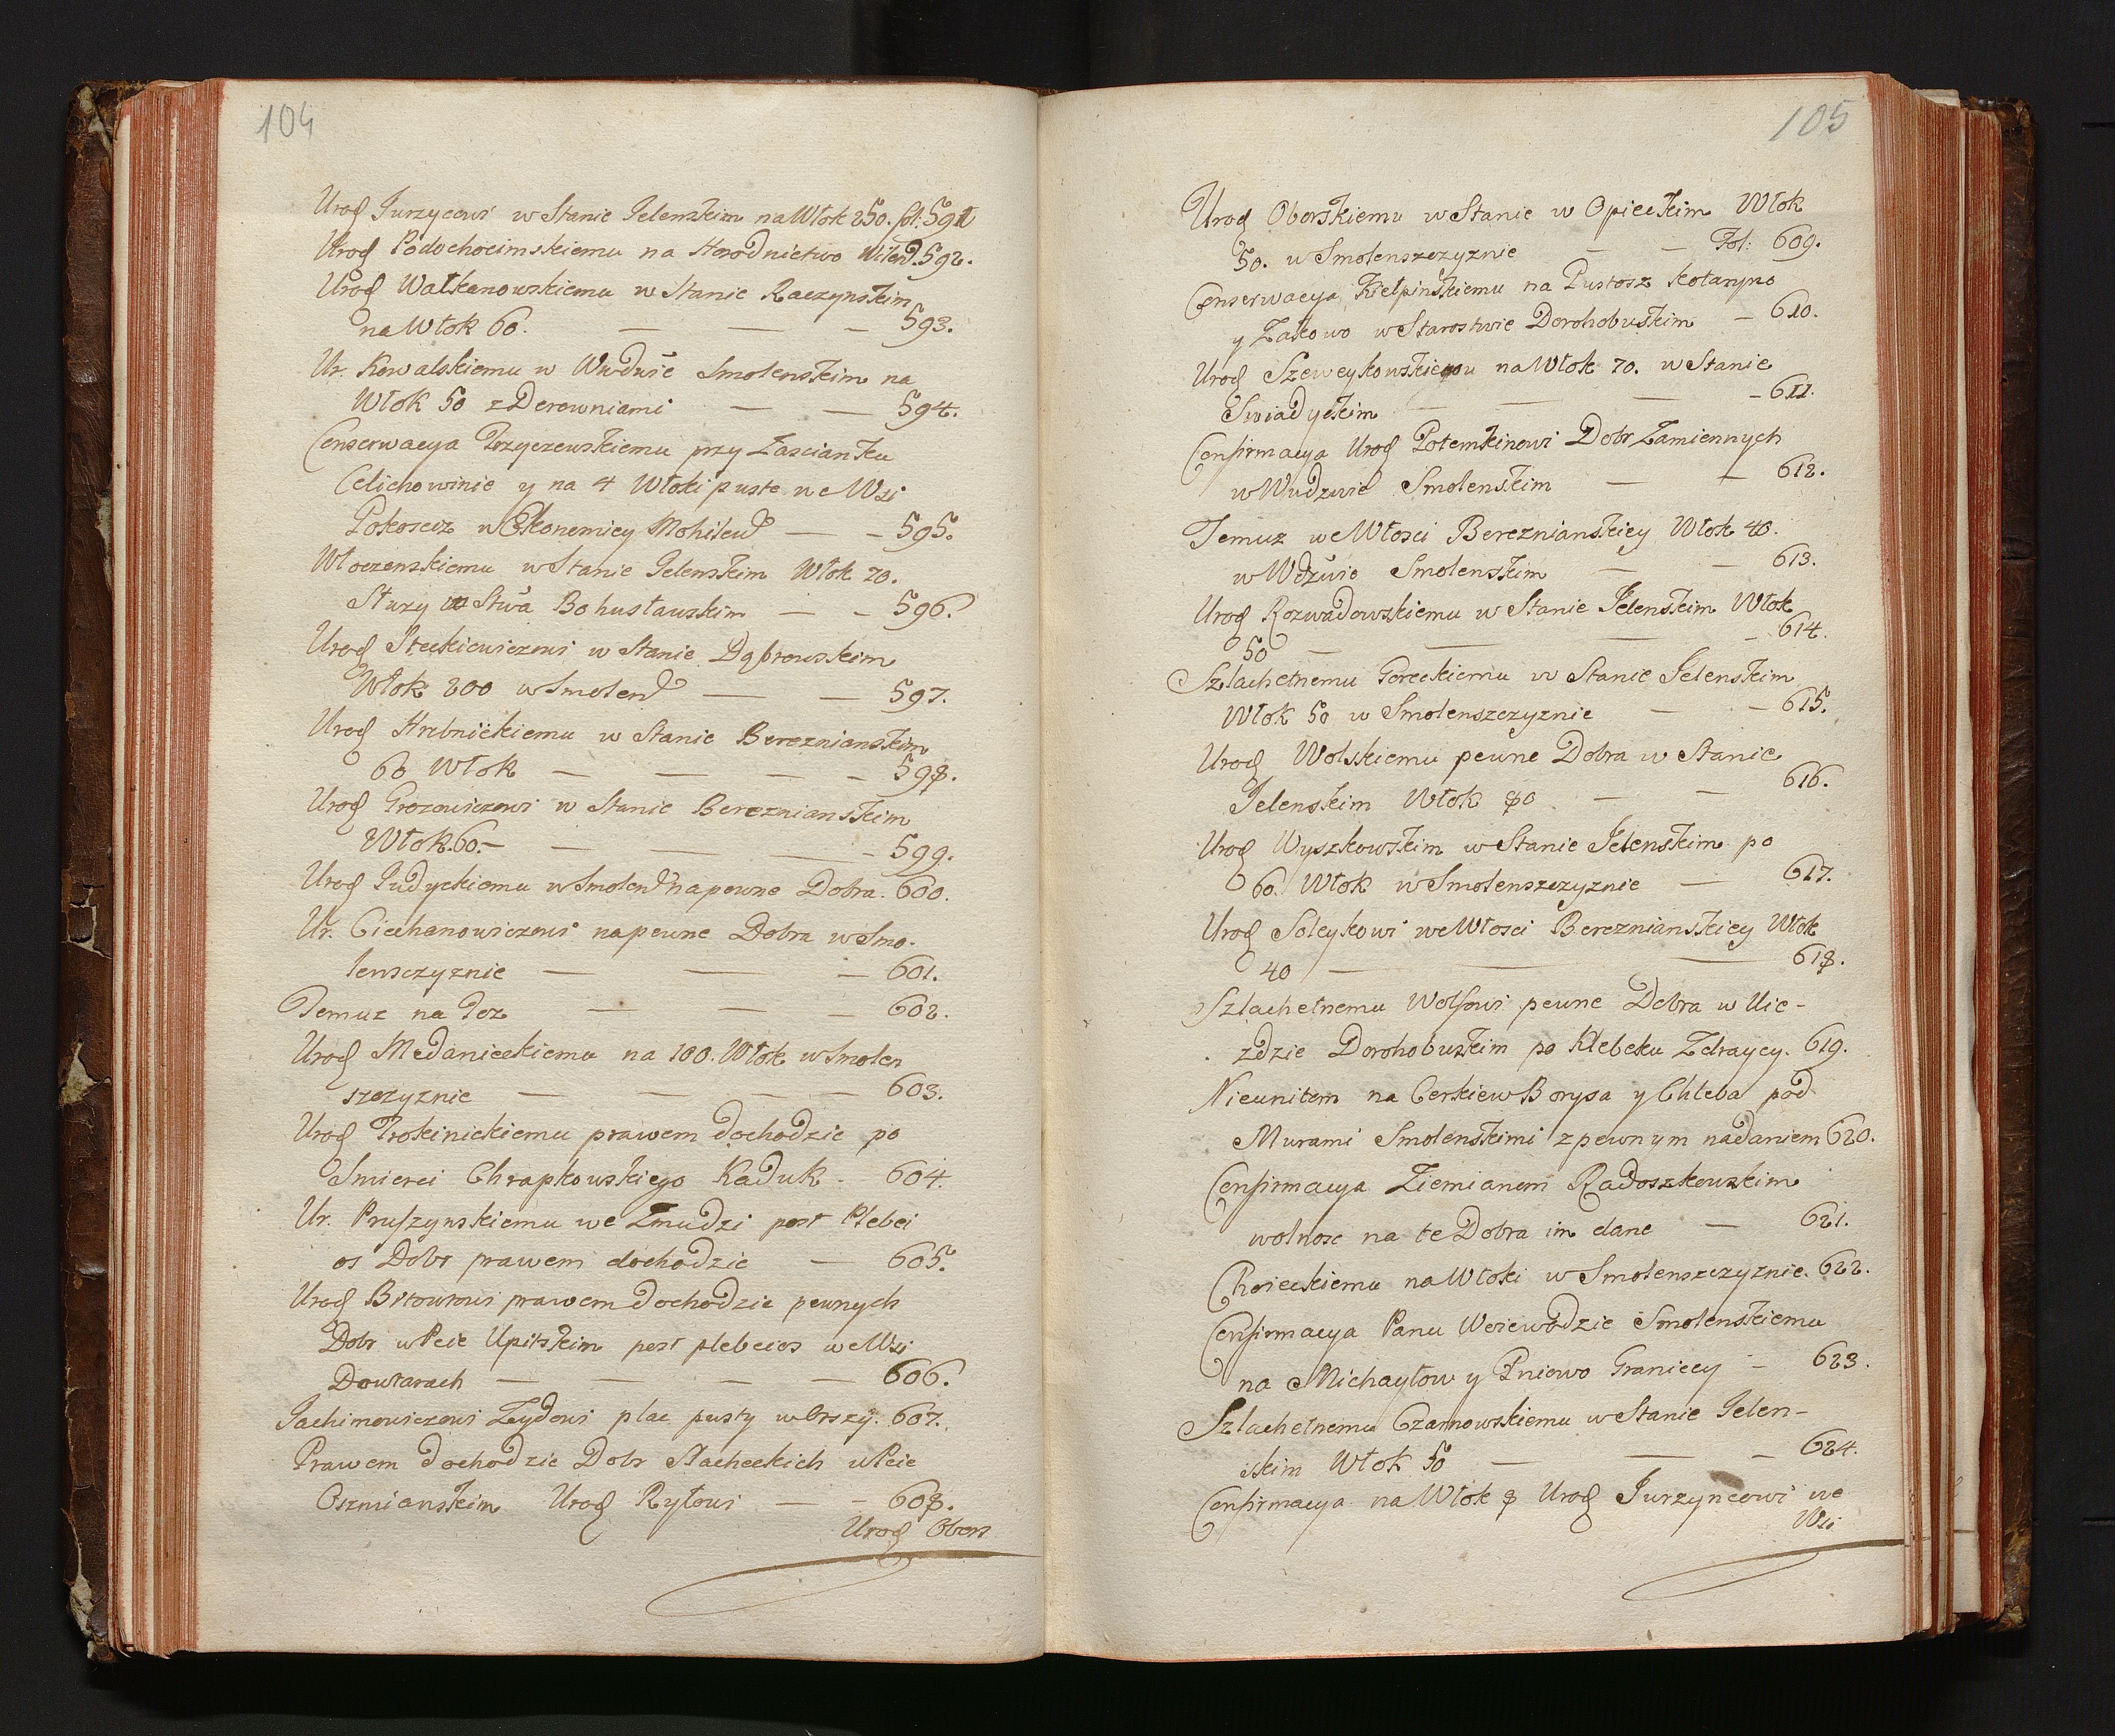 104
Urod Jurzycowi w Stanie Jelenskim na Włok 250. fol: 591
Urod Podochocimskiemu na Horodnictwo Wilen. 592.
Urod Walkanowskiemu w Stanie Raczynskim
na Włok 60. — — — 593.
Ur. Kowalskiemu w Wwdwie Smolenskim na
Włok 50 z Derewniami — — 594.
Conserwacya Przyczewskiemu przy Zascianku
Celichowinie y na 4 Włoki puste we Wsi
Pokoscez w Ekonomiey Mohilew — — 595.
Włoczenskiemu w Stanie Jelenskim Włok 70.
Sturzy Stwa Bohusławskim — — 596.
Urod Steckiewiczowi w Stanie Dąbrowskim
Włok 200 w Smolen — — 597.
Urod Hrebnickiemu w Stanie Bereznianskim
60 Włok — — — — 598.
Urod Grozowiczowi w Stanie Bereznianskim
Włok. 60. — — — — 599.
Urod Judyckiemu w Smolen na pewne Dobra. 600.
Ur. Ciechanowiczowi na pewne Dobra w Smo-
lensczyznie — — — 601.
Temuz na Toz — — — 602.
Urod Medanieckiemu na 100. Włok w Smolen
szczyznie — — — — 603.
Urod Prokinickiemu prawem dochodzic po
Smierci Chrapkowskiego Kaduk - 604.
Ur. Pruszynskiemu we Zmudzi post Plebei
os Dobr prawem dochodzic — 605.
Urod Bitowtowi prawem dochodzic pewnych
Dobr w Pcie Upitskim post plebeios we Wsi
Dowtarach — — — — 606.
Jachimowiczowi Zydowi plac pusty w Orszy. 607.
Prawem dochodzic Dobr Slacheckich w Pcie
Oszmianskim Urod Ryłowi — — 608.
Urod Obors
105
Urod Oborskiemu w Stanie w Opieckim Włok
50. w Smolenszczyznie — — Fol: 609.
Conserwacya Kiełpinskiemu na Pustosz Kotaryno
y Zakowo w Starostwie Dorohobuskim — 610.
Urod Szeweykowskiemu na Włok 70. w Stanie
Swiadyckim — — — — 611.
Confirmacya Urod Potemkinowi Dobr Zamiennych
w Wwdzwie Smolenskim — — 612.
Temuz we Włosci Bereznianskiey Włok 40.
w Wdzwie Smolenskim — — 613.
Urod Rozwadowskiemu w Stanie Jelenskim Włok
50 — — — — 614.
Szlachetnemu Goreckiemu w Stanie Jelenskim
Włok 50 w Smolenszczyznie — — 615.
Urod Wolskiemu pewne Dobra w Stanie
Jelenskim Włok 80 — — 616.
Urod Wyszkowskim w Stanie Jelenskim po
60. Włok w Smolenszczyznie — 617.
Urod Soleykowi we Włosci Bereznianskiey Włok
40 — — — 618.
Szlachetnemu Wolfowi pewne Dobra w Uie-
zdzie Dorohobuskim po Klebcku Zdraycy. 619.
Nieunitom na Cerkiew Borysa y Chleba pod
Murami Smolenskimi z pewnym nadaniem 620.
Confirmacya Ziemianom Radoszkowskim
wolnosc na te Dobra im dane — 621.
Choieckiemu na Włoki w Smolenszczyznie. 622.
Confirmacya Panu Woiewodzie Smolenskiemu
na Michayłow y Pniewo Graniccy — 623.
Szlachetnemu Czarnowskiemu w Stanie Jelen-
skim Włok 50 — — — 624.
Confirmacya na Włok 8 Urod Jurzyncowi we
Wsi